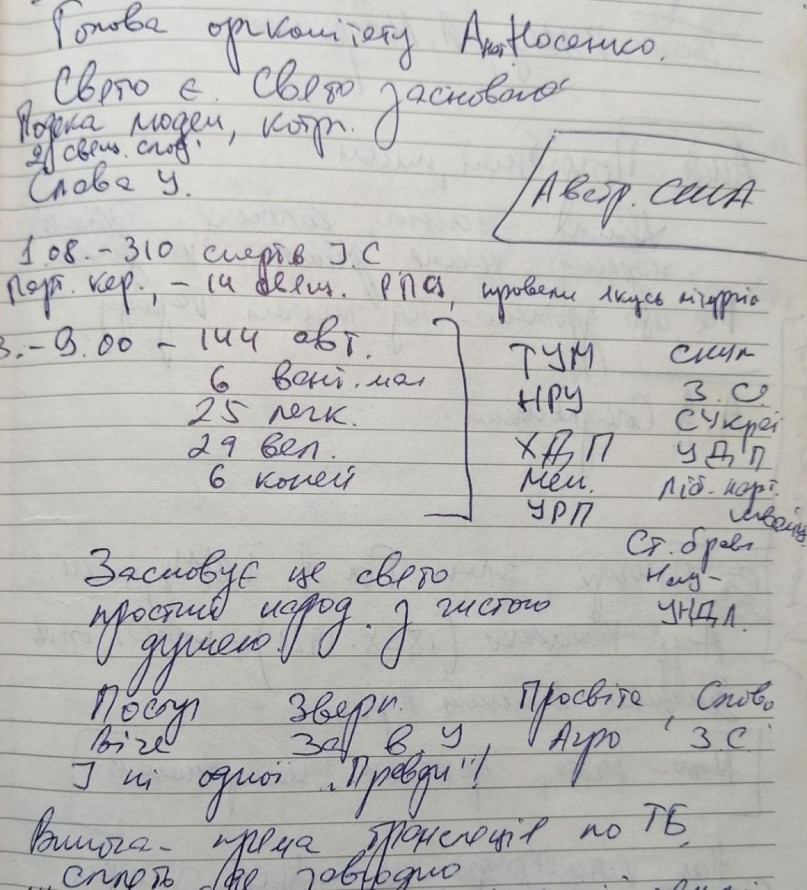 Голова оргкомітету Анат Носенко.
Свято є. Свято засновано
Подяка людей, котрі.
2) свящ. слод.
Слава У.
Австр. США
108. – 310 смерть І.С
Парт. кер., – 14 свящ. РПЦ, провели якусь літургію
3. – 9.00 – 144 авт.
6 вант. маш
25 легк.
29 вел.
6 коней
ТУМ СНУМ
НРУ З.С.
СУкраї
ХДП УДП
Мем. Ліб. парт.
УРП
Ст. брат
Нац-
УНДЛ.
Засновує це свято
простий народ з чистою
душею.
Поступ Зверн. Просвіта, Слово
Віче За в У, Агро З.С
І ні одної "Правди"!
Вимога – пряма трансляція по ТБ